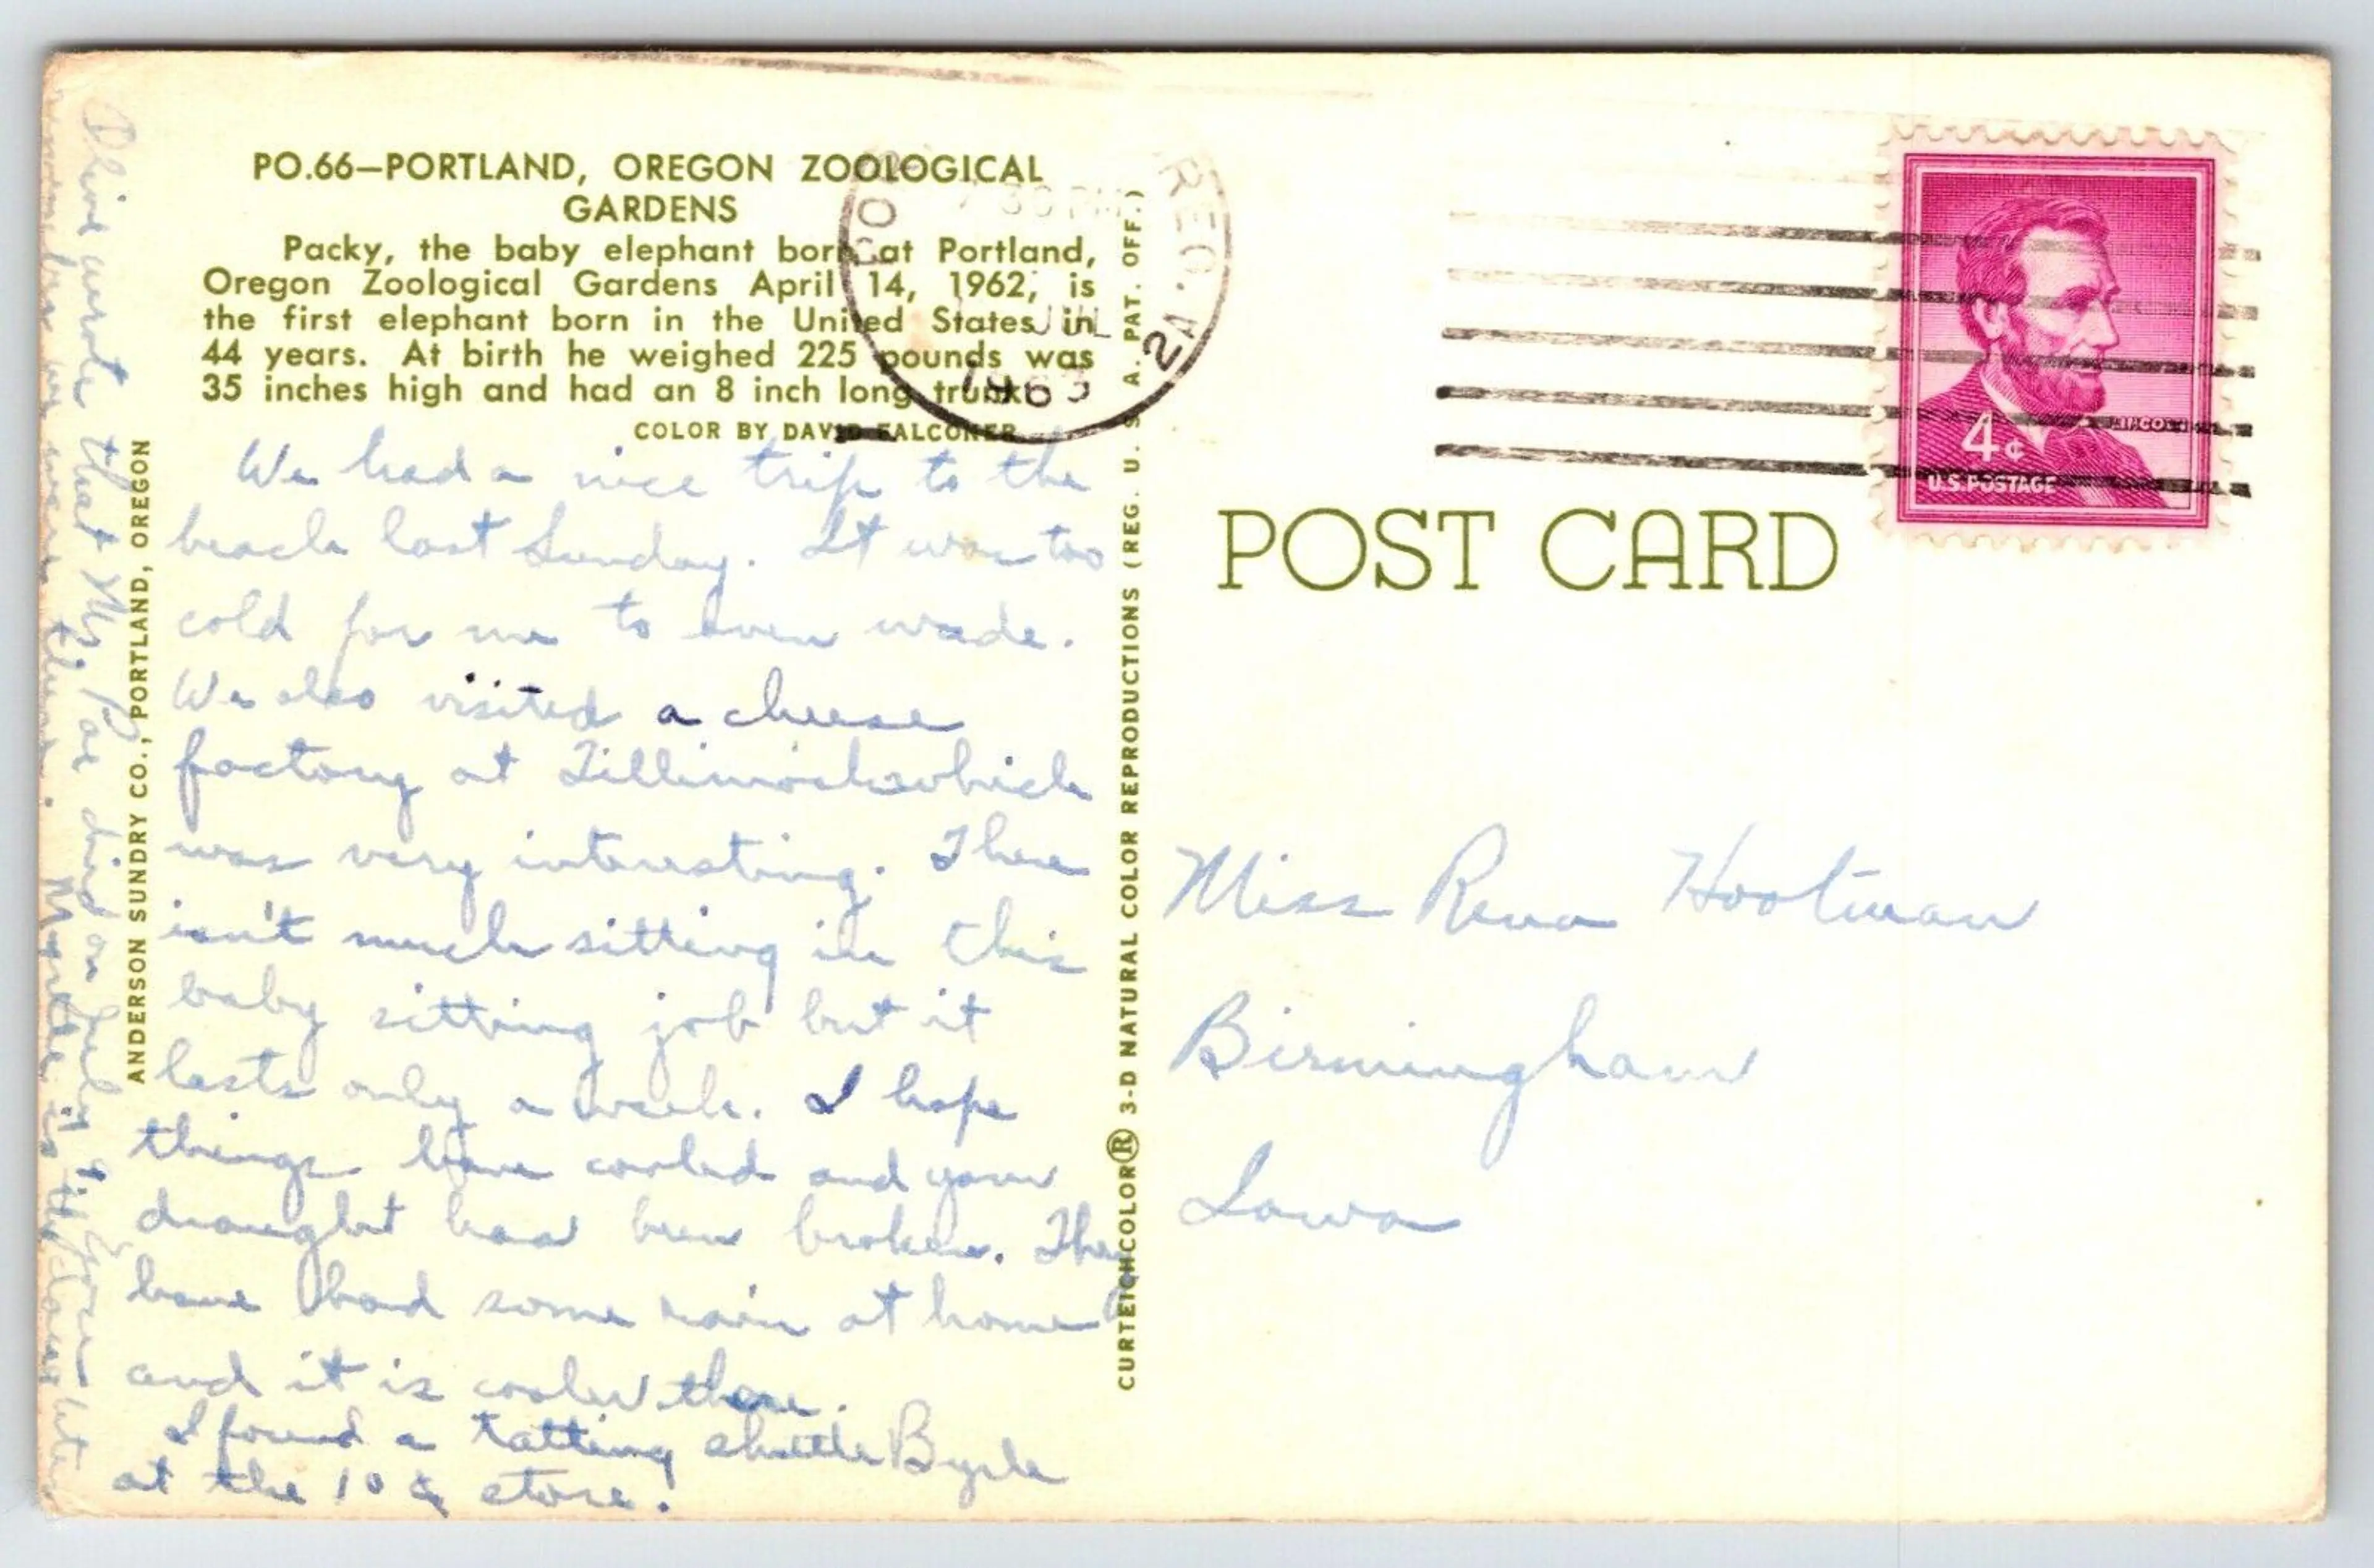 PO.66—PORTLAND, OREGON ZOOLOGICAL
GARDENS
Packy, the baby elephant born at Portland,
Oregon Zoological Gardens April 14, 1962, is
the first elephant born in the United States in
44 years. At birth he weighed 225 pounds was
35 inches high and had an 8 inch long trunk.
COLOR BY DAVID FALCONER
We had a nice trip to the
beach last Sunday. It was too
cold for me to even wade.
We also visited a cheese
factory at Tillimook which
was very interesting. There
isn't much sitting in this
baby sitting job but it
lasts only a week. I hope
things have cooled and your
draught has been broken. They
have had some rain at home
and it is cooler there.
I found a tatting shuttle
at the 10¢ store.
Olive wrote that Mr. died on July
remember we were there. Myrtle is the daughter
ANDERSON SUNDRY CO., PORTLAND, OREGON
CURTEICHCOLOR® 3-D NATURAL COLOR REPRODUCTIONS (REG. U. S. A. PAT. OFF.)
30 PM
JUL
1963
POST CARD
LINCOLN
4¢
U.S. POSTAGE
Miss Rena Hootman
Birmingham
Iowa